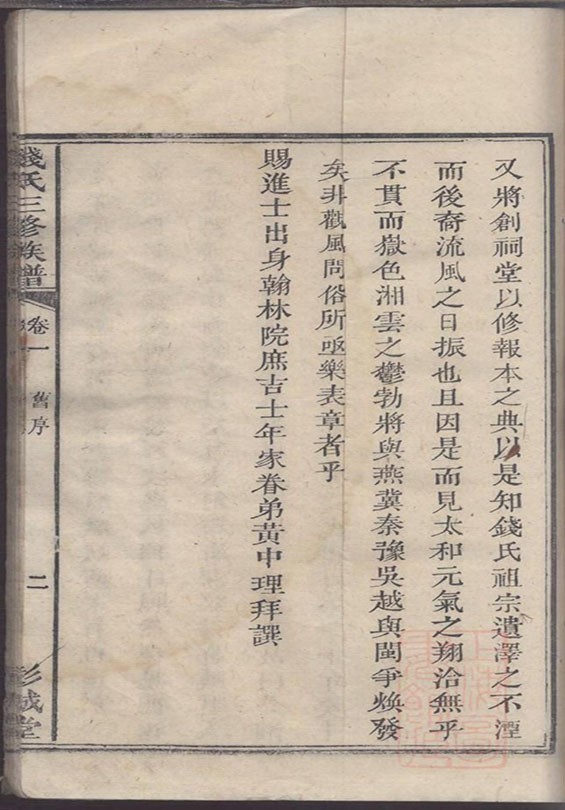 又將創祠堂以修報本之典以是知錢氏祖宗遺澤之不湮
而後裔流風之日振也且因是而見太和元氣之翔洽無乎
不貫而嶽色湘雲之鬱勃將與燕冀秦豫吳越與閩爭煥發
矣非觀風問俗所亟樂表章者乎
賜進士出身翰林院庶吉士年家眷弟黃中理拜譔
錢氏三修族譜
卷一
舊序
二
彭城堂